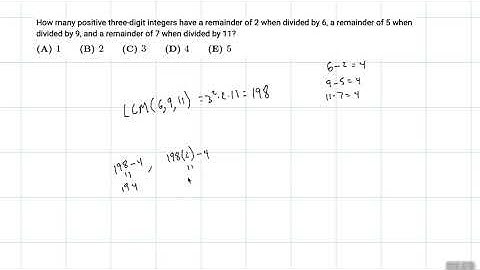 How many positive three-digit integers have a remainder of 2 when divided by 6, a remainder of 5 when
divided by 9, and a remainder of 7 when divided by 11?
(A) 1 (B) 2 (C) 3 (D) 4 (E) 5
6-2=4
9-5=4
11-7=4
LCM(6,9,11) = 3²·2·11 = 198
198-4, 198(2)-4
11 11
194